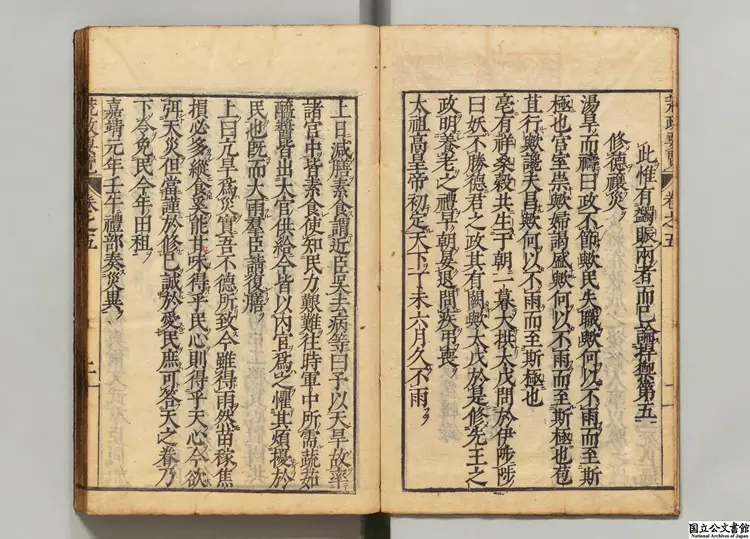 荒政要覽 卷之五
此惟有蠲賑兩者而已論第五
修德禳災
湯旱而禱曰政不節歟民失職歟何以不雨而至斯
極也宮室崇歟婦謁盛歟何以不雨而至斯極也苞
苴行歟讒夫昌歟何以不雨而至斯極也
亳有祥桑穀共生于朝一暮大拱大戊問於伊陟陟
曰妖不勝德君之政其有闕歟大戊於是修先王之
政明養老之禮早朝晏退問疾弔喪
太祖高皇帝初定天下丁未六月久不雨
上日減膳素食謂近臣吳去病等曰予以天旱故率
諸宮中皆素食使知民力艱難往時軍中所需蔬茹
醯醬皆出大官供給今皆以內官爲之懼其煩擾於
民也既而大雨羣臣請復膳
上曰亢旱爲災實吾不德所致今雖得雨然苗稼焦
損必多縱食奚能甘味得乎民心則得乎天心今欲
弭天災但當謹於修己誠於愛民庶可答天之眷乃
下令免民今年田租
嘉靖元年壬午禮部奏災異
荒政要覽 卷之五
国立公文書館
National Archives of Japan